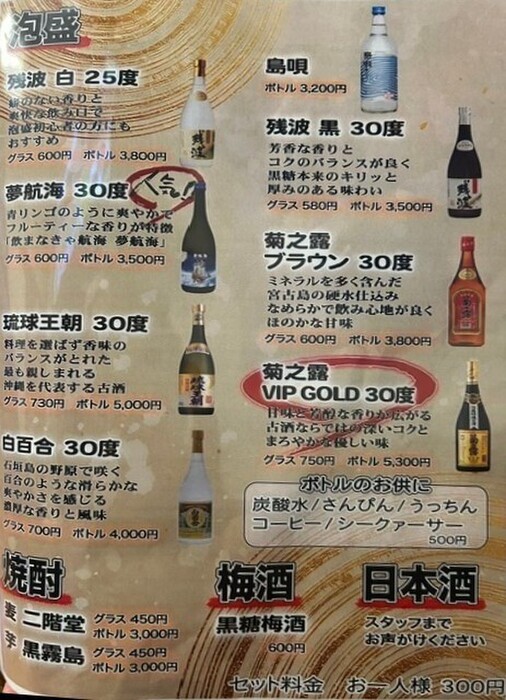 泡盛
残波 白 25度
癖のない香りと
爽快な飲み口で
泡盛初心者の方にも
おすすめ
グラス 600円 ボトル 3,800円
夢航海 30度
人気!!
青リンゴのように爽やかで
フルーティーな香りが特徴
「飲まなきゃ航海 夢航海」
グラス 600円 ボトル 3,500円
琉球王朝 30度
料理を選ばず香味の
バランスがとれた
最も親しまれる
沖縄を代表する古酒
グラス 730円 ボトル 5,000円
白百合 30度
石垣島の野原で咲く
百合のような滑らかな
爽やかさを感じる
濃厚な香りと風味
グラス 700円 ボトル 4,000円
島唄
ボトル 3,200円
残波 黒 30度
芳香な香りと
コクのバランスが良く
黒糖本来のキリッと
厚みのある味わい
グラス 580円 ボトル 3,500円
菊之露
ブラウン 30度
ミネラルを多く含んだ
宮古島の硬水仕込み
なめらかで飲み心地が良く
ほのかな甘味
グラス 600円 ボトル 3,800円
菊之露
VIP GOLD 30度
甘味と芳醇な香りが広がる
古酒ならではの深いコクと
まろやかな優しい味
グラス 750円 ボトル 5,300円
ボトルのお供に
炭酸水/さんぴん/うっちん
コーヒー/シークァーサー
500円
焼酎
麦 二階堂 グラス 450円
ボトル 3,000円
芋 黒霧島 グラス 450円
ボトル 3,000円
梅酒
黒糖梅酒
600円
日本酒
スタッフまで
お声がけください
セット料金 お一人様 300円